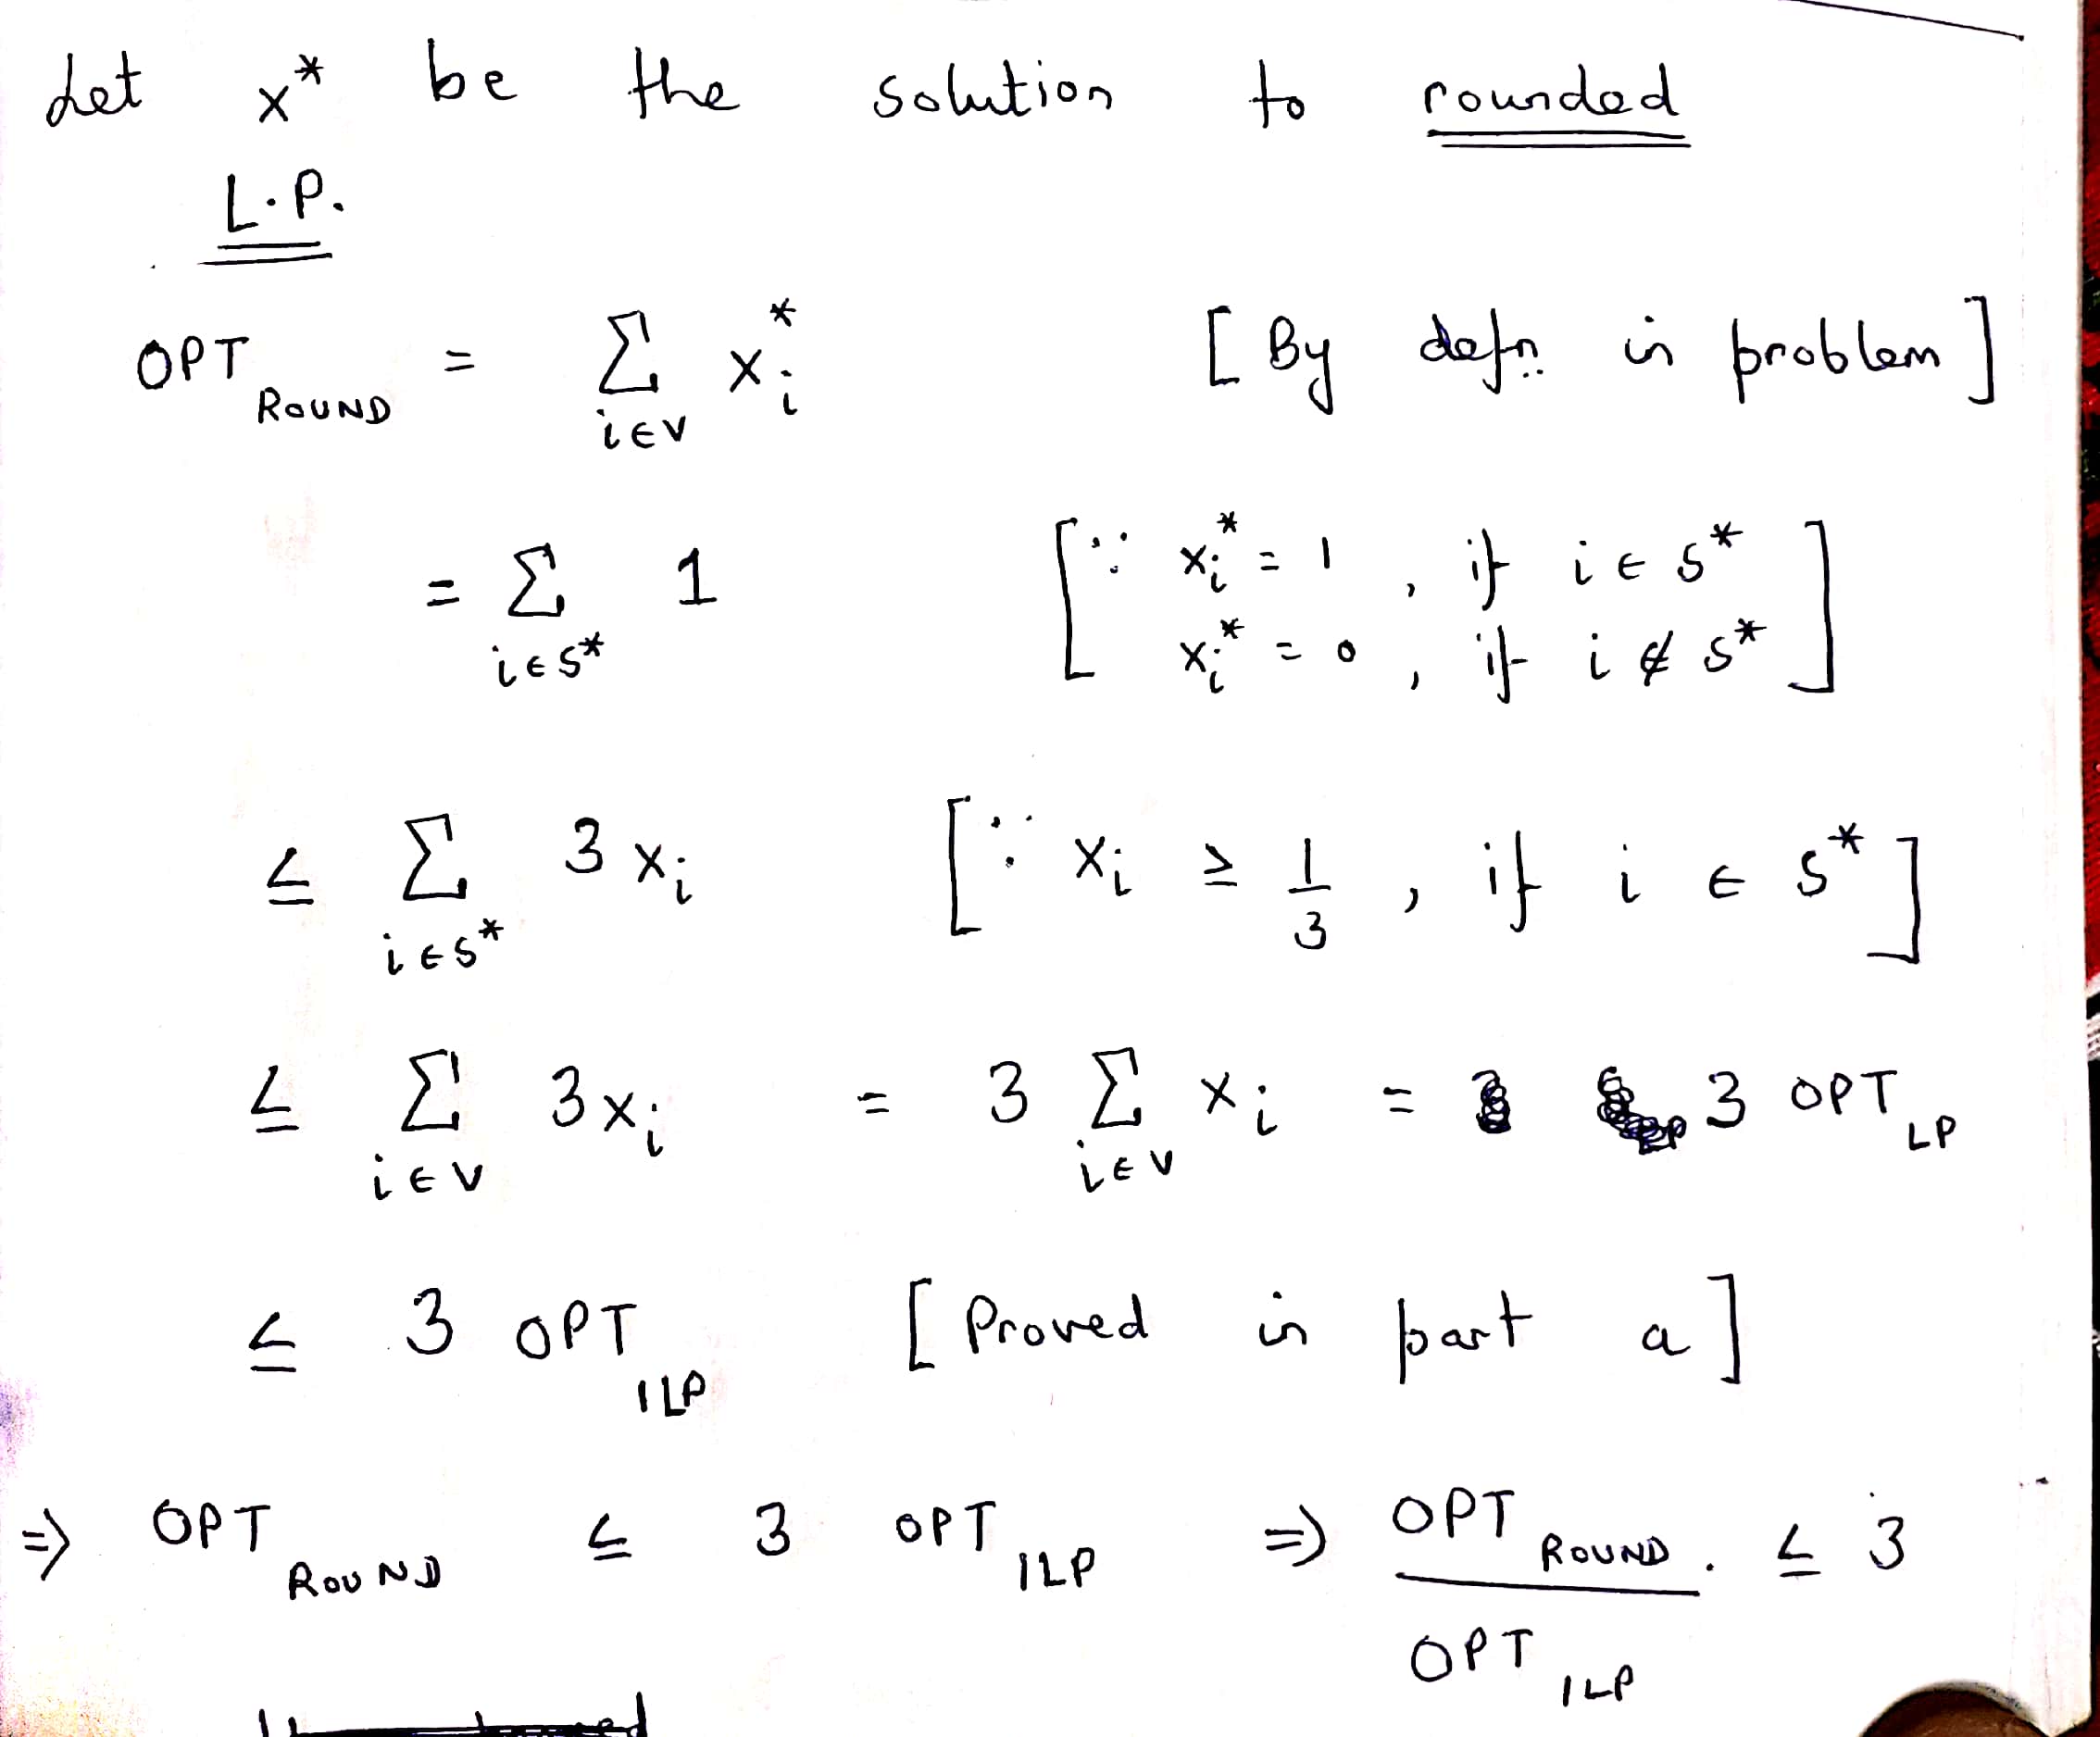 Let x* be the solution to rounded
L.P.
OPT_ROUND = Σ_{i∈V} x_i* [By defn. in problem]
= Σ_{i∈S*} 1 [∵ x_i* = 1, if i ∈ S*
x_i* = 0, if i ∉ S*]
≤ Σ_{i∈S*} 3x_i [∵ x_i ≥ 1/3, if i ∈ S*]
≤ Σ_{i∈V} 3x_i = 3 Σ_{i∈V} x_i = 3 OPT_LP
≤ 3 OPT_ILP [Proved in part a]
⇒ OPT_ROUND ≤ 3 OPT_ILP ⇒ OPT_ROUND / OPT_ILP ≤ 3